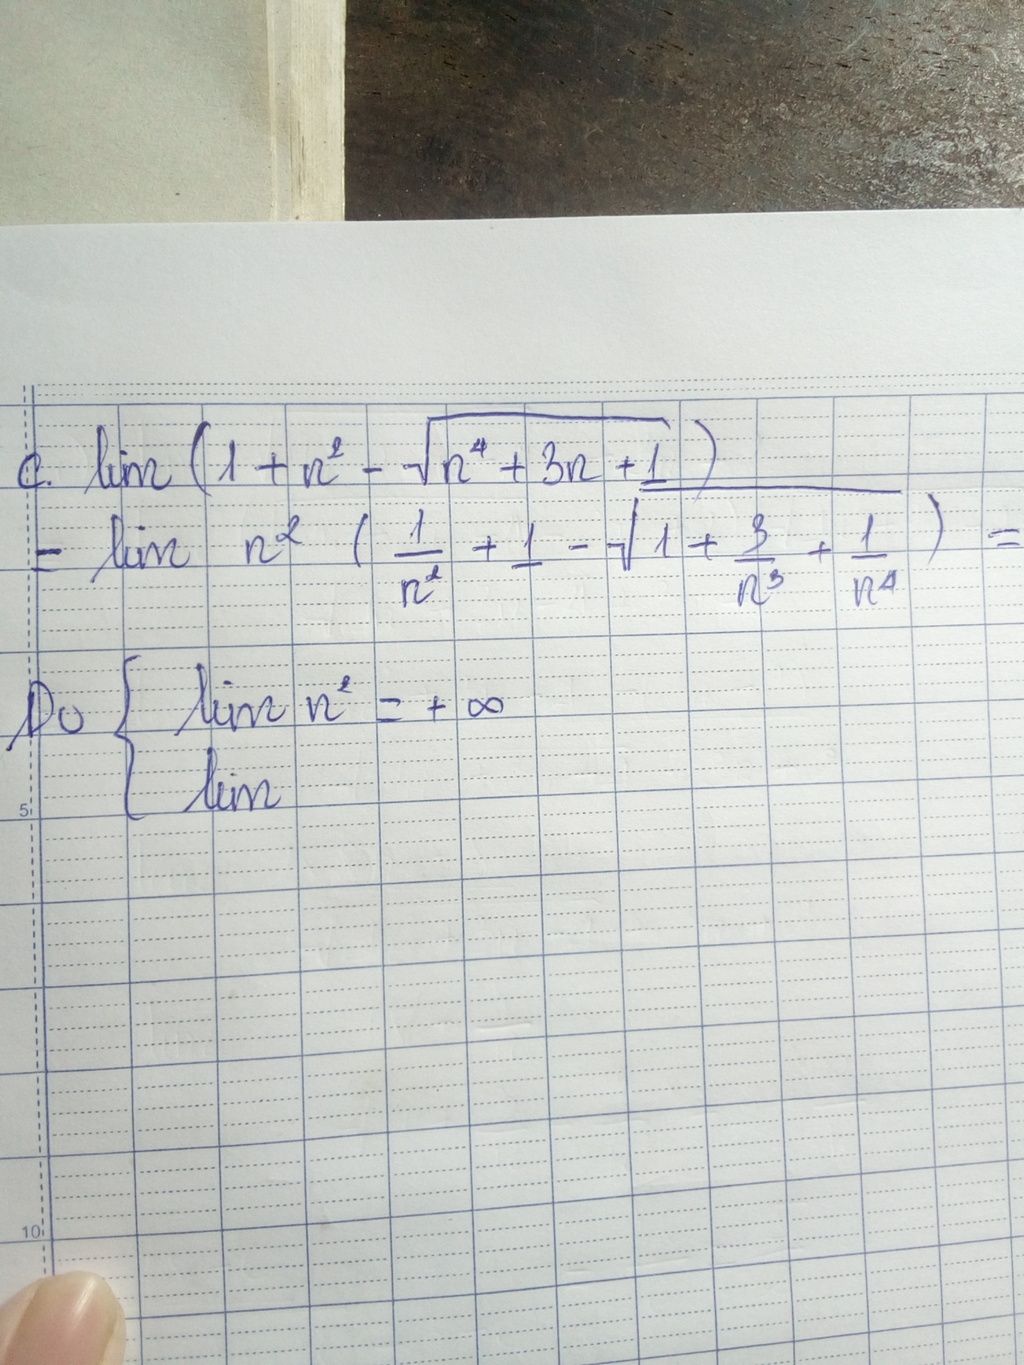 c. lim (1 + n² - √(n⁴ + 3n + 1))
= lim n² (1/n² + 1 - √(1 + 3/n³ + 1/n⁴)) =
Do { lim n² = + ∞
lim
5
10